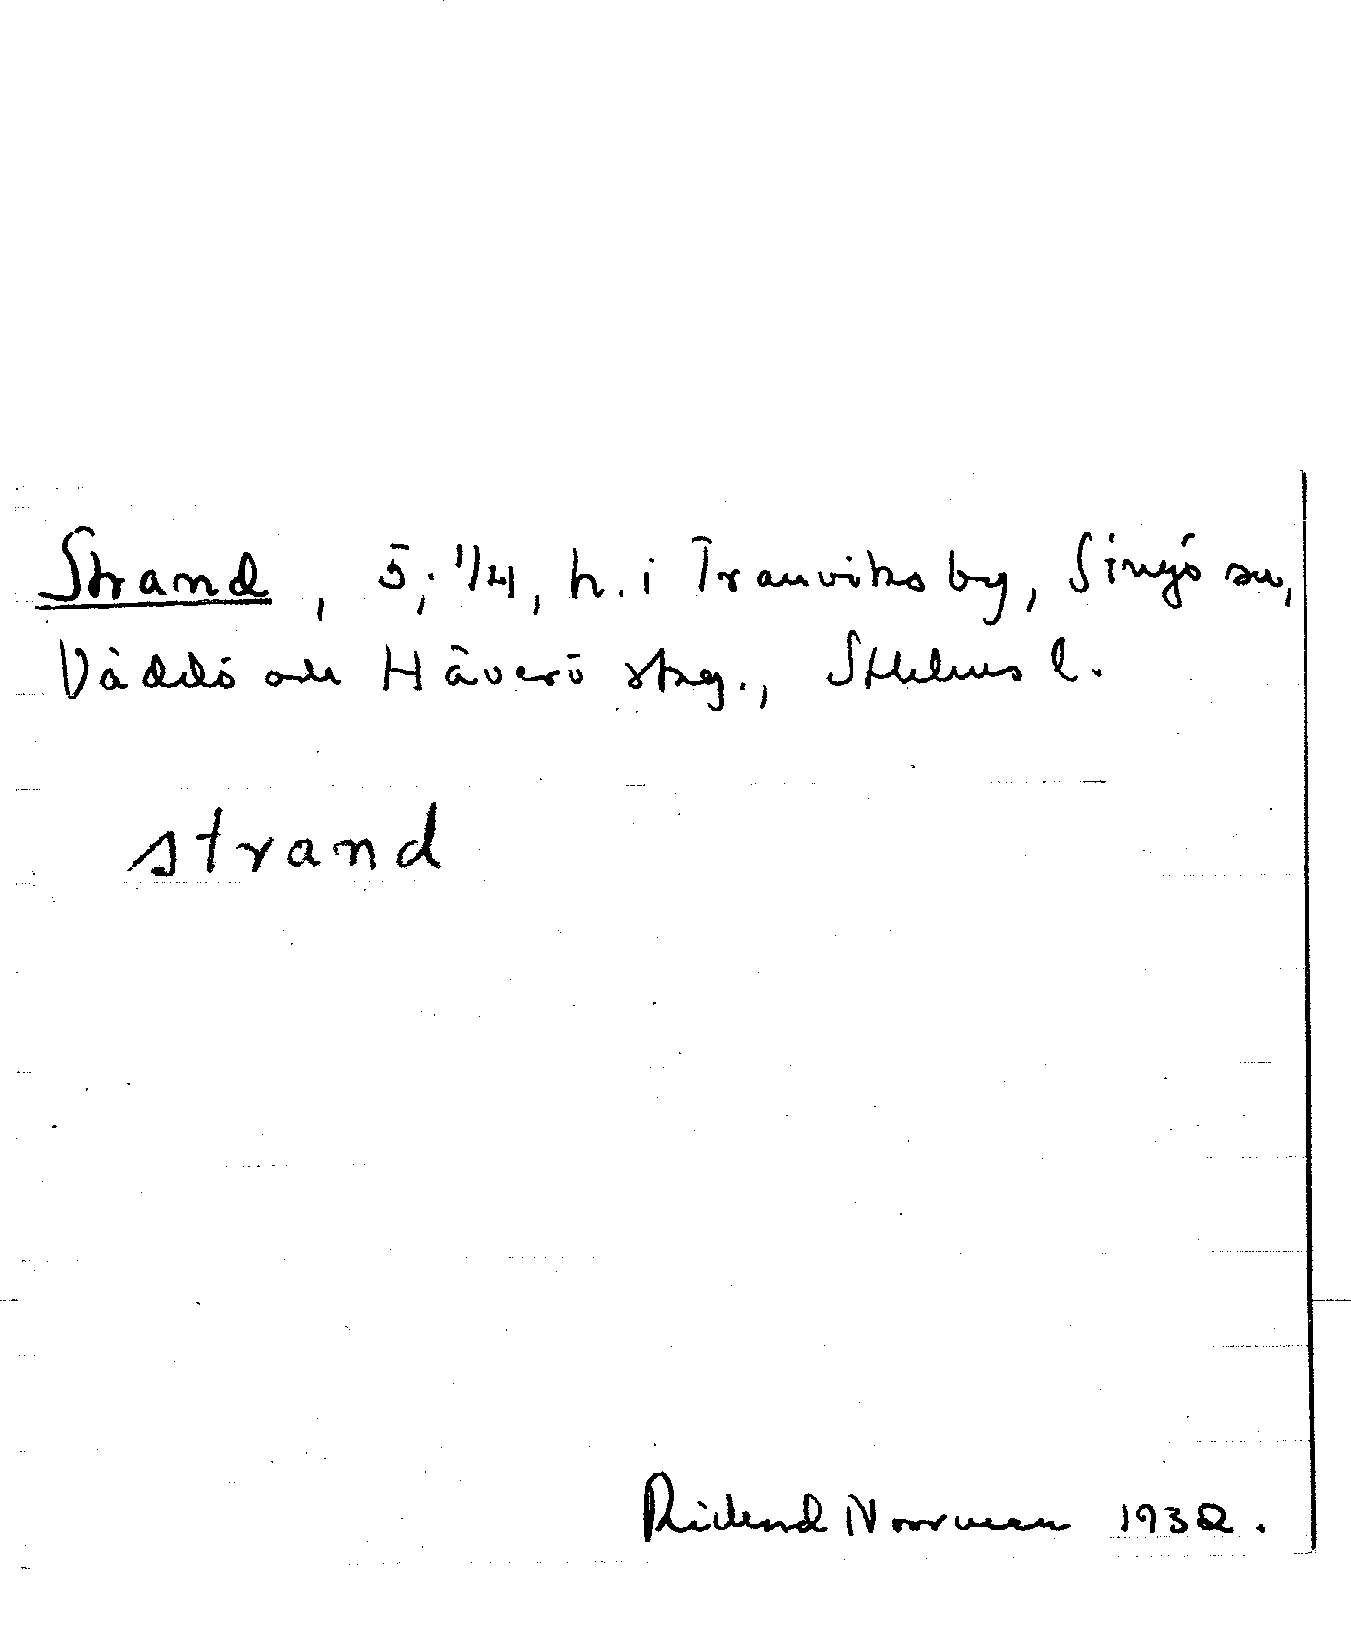 Strand, 5; 1/4, h. i Tranviks by, Singö sn,
Väddö och Häverö skg., Sthlms l.
strand
Rickard Norrman 1932.